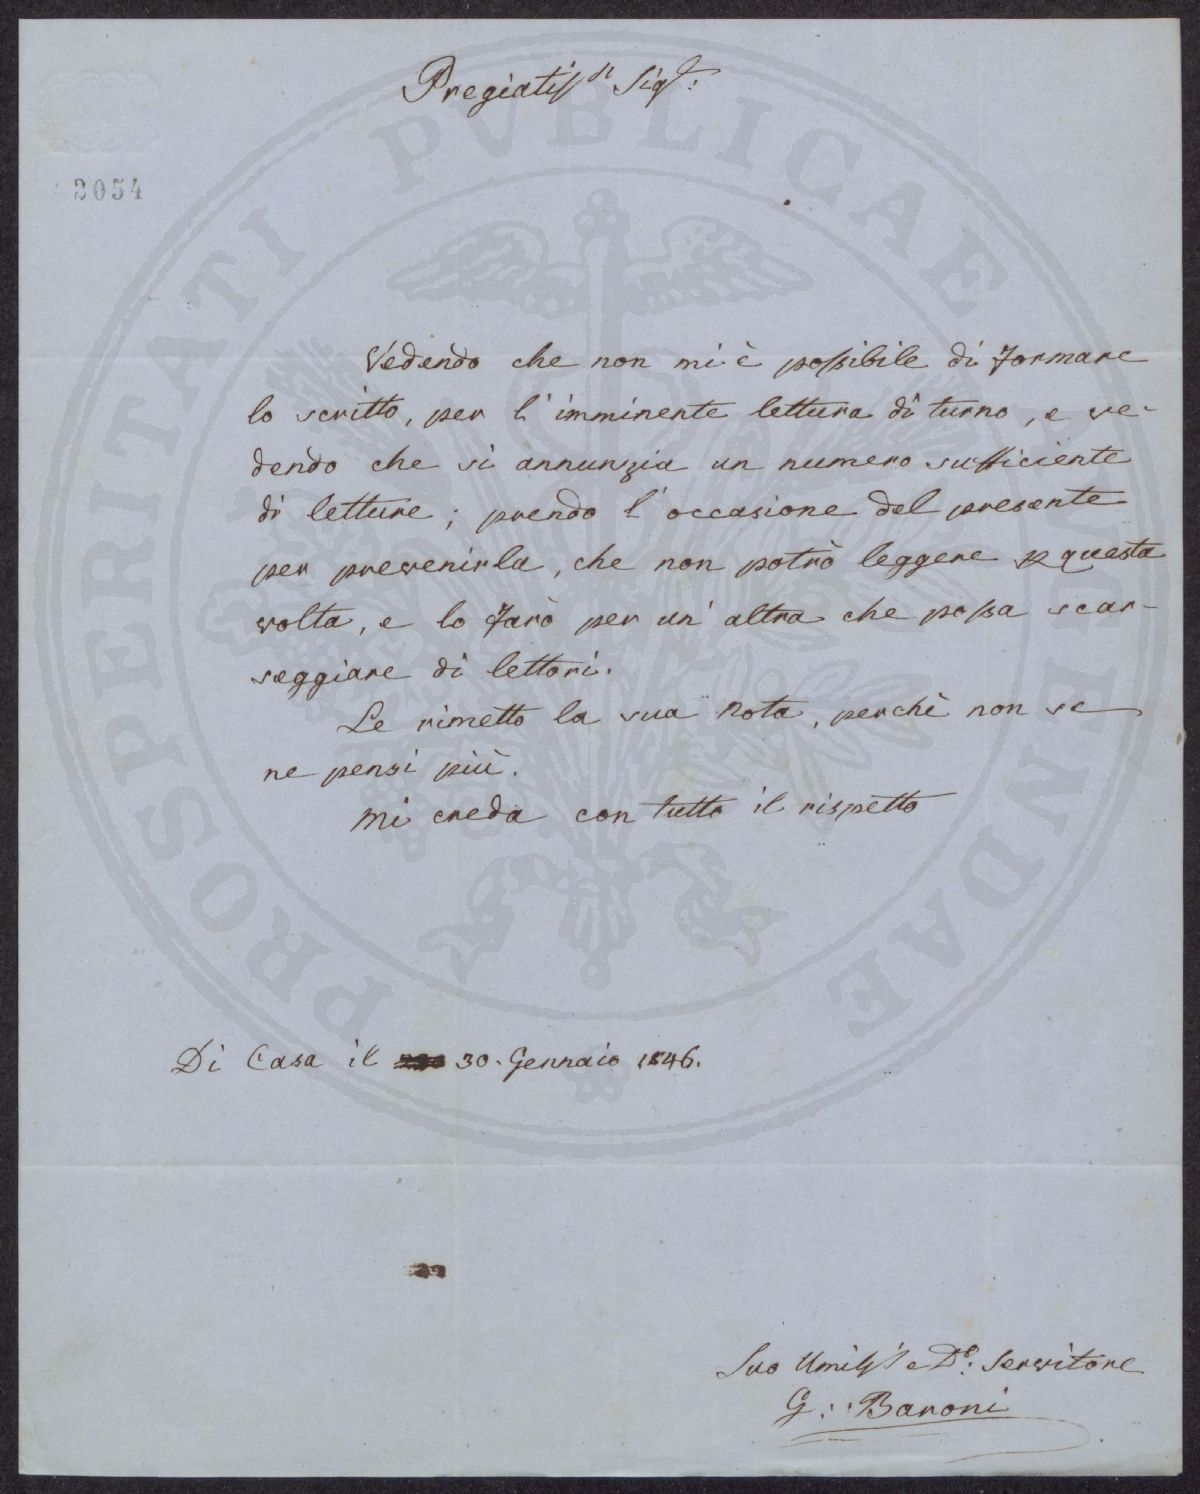 Pregiatiss.mo Sigr:
2054
Vedendo che non mi è possibile di formare
lo scritto, per l'imminente lettura di turno, e ve-
dendo che si annunzia un numero sufficiente
di letture; prendo l'occasione del presente
per prevenirla, che non potrò leggere p questa
volta, e lo farò per un'altra che possa scar-
seggiare di lettori.
Le rimetto la sua Nota, perchè non se
ne pensi più.
Mi creda con tutto il rispetto
Di Casa il 30. Gennaio 1846.
Suo Umiliss. e D.o: Servitore
G:: Baroni
PROSPERITATI PVBLICAE AVGENDAE